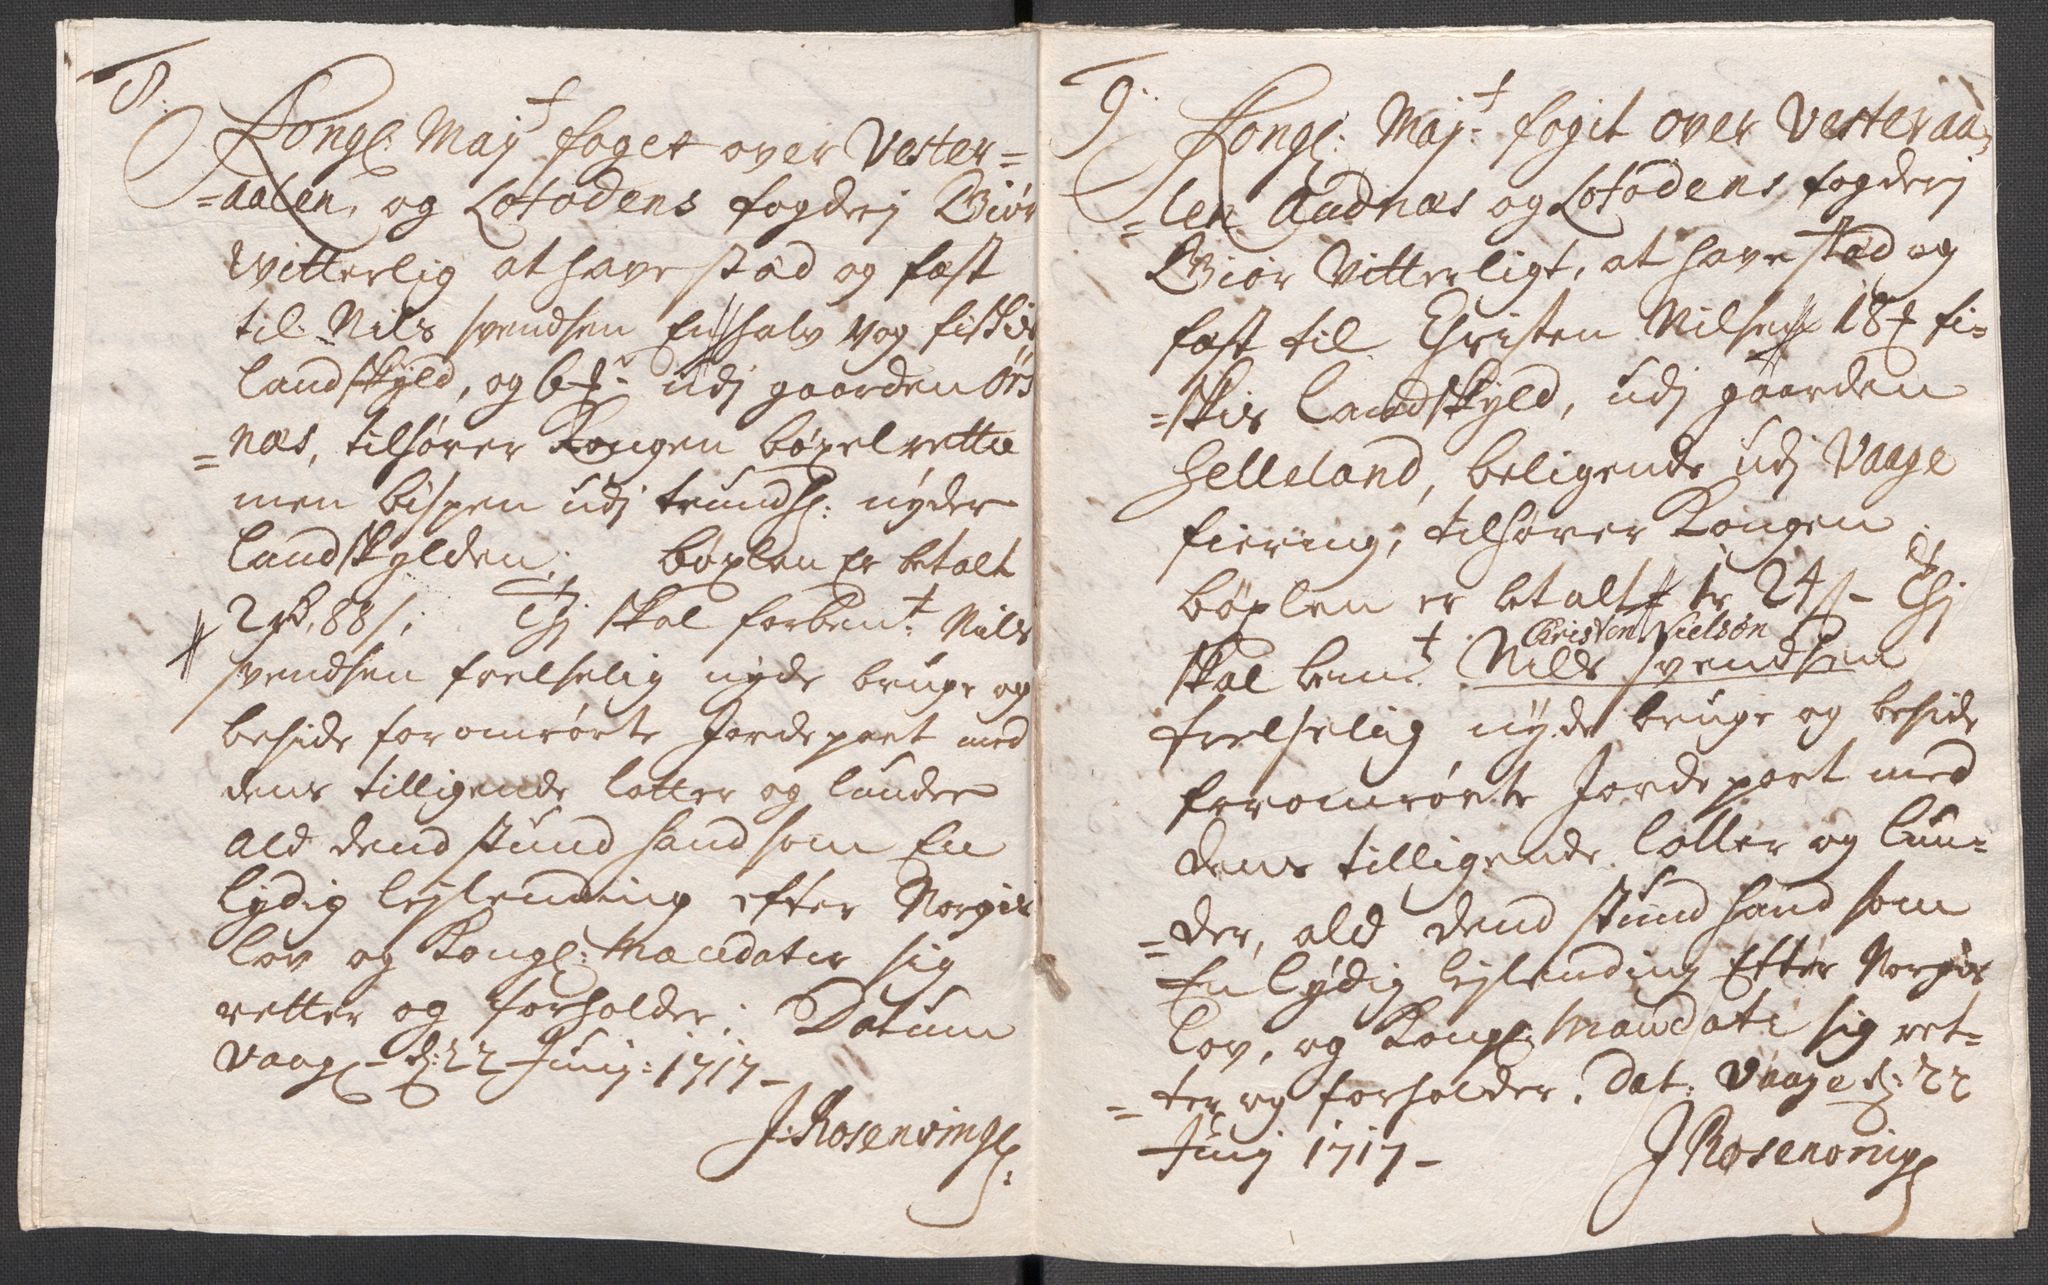 8.
Kongl: Maÿt foget over Vester-
=aalen, og Lofodens fogderj Giör
Witterlig at have stæd og fæst
til Nils svendsen En halv vog fiskis
landskyld, og 6 ₰r udj gaarden Örs
=næs, tilhører Kongen böxelrettu
men bispen udj trundhl: nyder
landskylden. böxlen Er betalt
2 rd, 88 s; Thj skal forbent: Nills
svendsen frelselig nyde bruge og
beside foromrörte Jordepart med
dens tilligende lotter og lunder
Ald dend stund hand som En
lydig lejlending efter Norgis
lov og Kongl: Mandater sig
retter og forholder; Datum
Vaagl- d: 22 Junij: 1717-
J: Rosenvinge:
9:
Kongl: Maj:t fogit over Vesteraa-
=len Andnæs og Lofodens fogderj
Giör Vitterligt, at have stæd og
fæst til Christen Nilsen 18 ₰ fi-
=skis landskyld, udj gaarden
Helleland, beligende udj Vaage
fiering, tilhører Kongen
böxlen er betalt tr 24 s- Thj
Christen Nielsøn
skal bem:t Nills svendsen
frelselig nyde bruge og beside
foromrörte Jordepart med
dens tilligende lotter og lun-
=der, ald dend stund hand som
En lydig lejlending Efter Norgis
lov, og Kongl: Mandate sig ret-
=ter og forholder. Dat: Vaage d: 22
Junij 1717-
J Rosenvinge